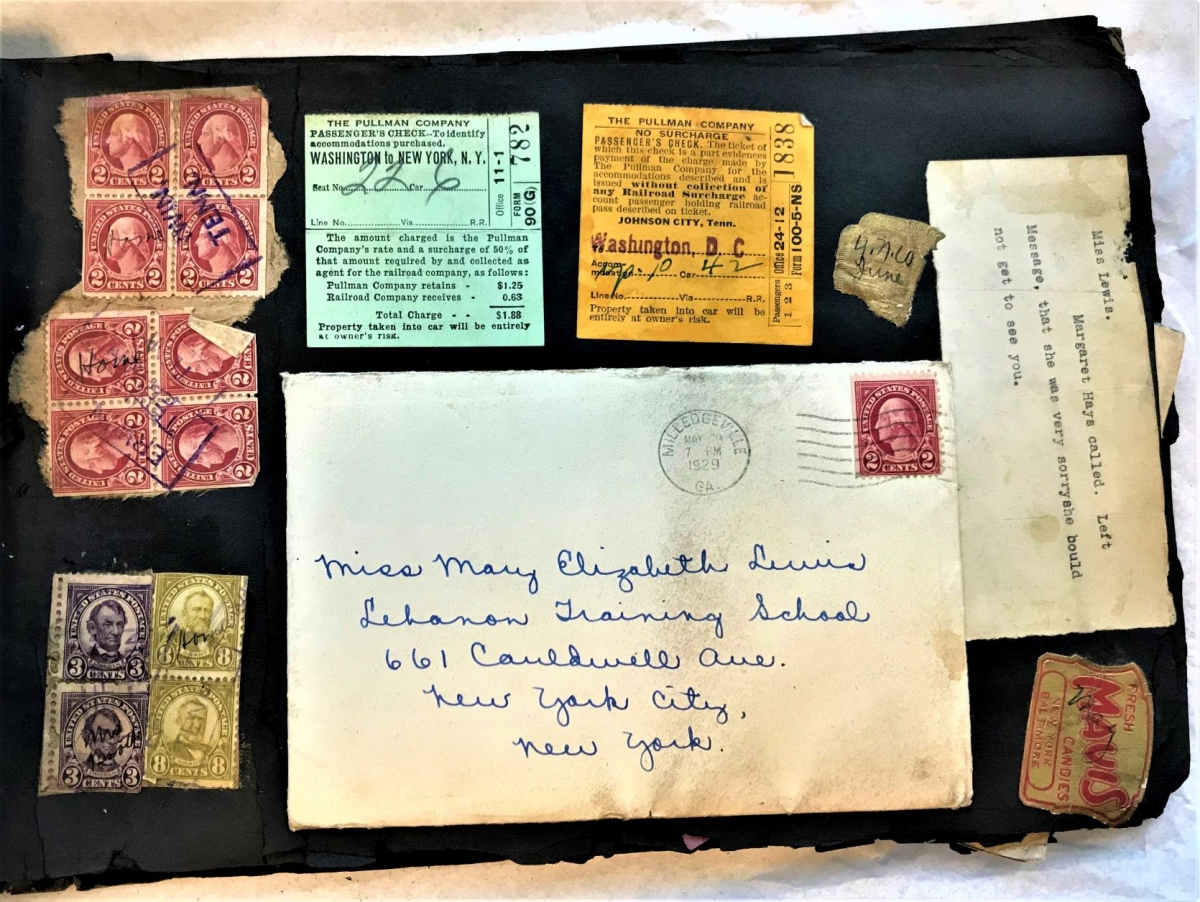 UNITED STATES POSTAGE
2 CENTS 2
ERWIN
TENN.
Home
UNITED STATES POSTAGE
2 CENTS 2
Home
UNITED STATES POSTAGE
3 CENTS 3
UNITED STATES POSTAGE
8 CENTS 8
Mrs
THE PULLMAN COMPANY
PASSENGER'S CHECK--To identify
accommodations purchased.
WASHINGTON to NEW YORK, N. Y.
Seat No. 22 Car 6
Line No. Via R.R.
The amount charged is the Pullman
Company's rate and a surcharge of 50% of
that amount required by and collected as
agent for the railroad company, as follows:
Pullman Company retains - $1.25
Railroad Company receives - 0.63
Total Charge - - $1.88
Property taken into car will be entirely
at owner's risk.
Office 11-1
FORM 90(G)
782
THE PULLMAN COMPANY
NO SURCHARGE
PASSENGER'S CHECK, The ticket of
which this check is a part evidences
payment of the charge made by
The Pullman Company for the
accommodations described and is
issued without collection of
any Railroad Surcharge ac-
count passenger holding railroad
pass described on ticket.
JOHNSON CITY, Tenn.
to
Washington, D. C
Accom-
modation Up. 10 Car 42
Line No. Via R.R.
Property taken into car will be
entirely at owner's risk.
Passengers 1 2 3
Office 24-12
Form 100-5-NS
1838
June
Miss Lewis.
Margaret Hays called. Left
Message, that she was very sorryshe bould
not get to see you.
MILLEDGEVILLE
MAY
7 PM
1929
GA.
UNITED STATES POSTAGE
2 CENTS 2
Miss Mary Elizabeth Lewis
Lebanon Training School
661 Cauldwell Ave.
New York City,
New York.
FRESH
MAVIS
CANDIES
NEW YORK
BALTIMORE